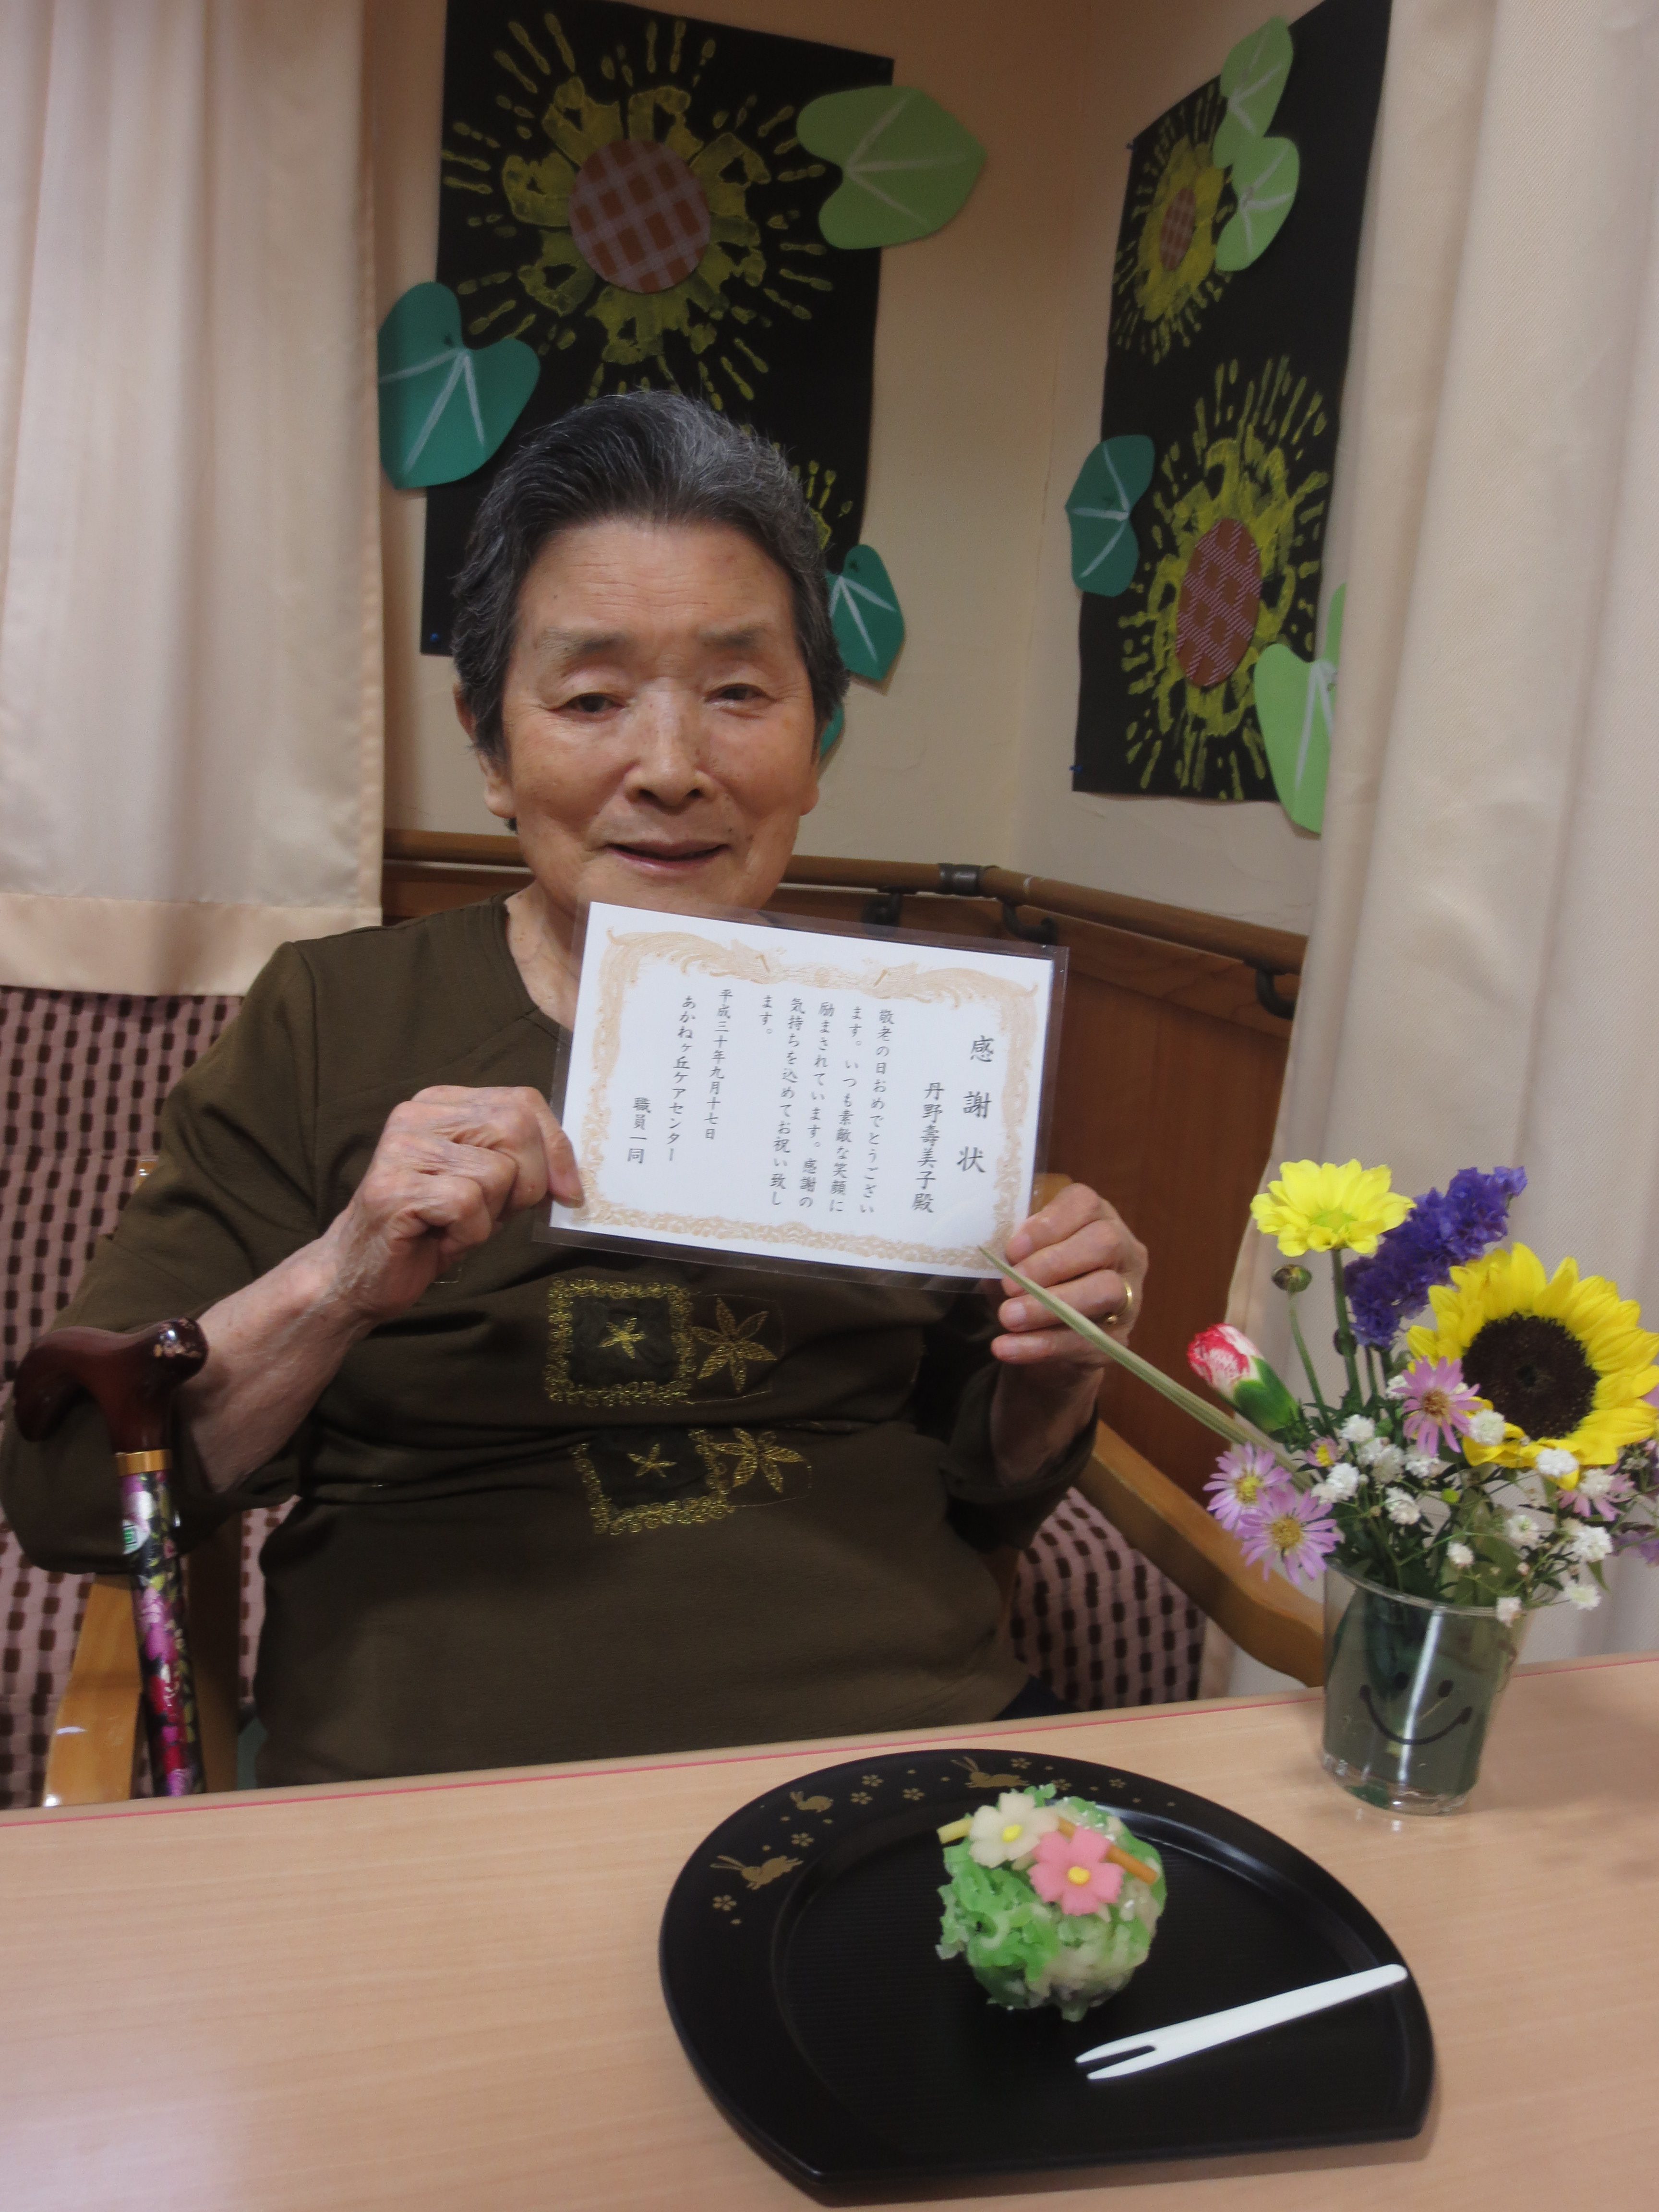 感謝状
丹野壽美子殿
敬老の日おめでとうござい
ます。いつも素敵な笑顔に
励まされています。感謝の
気持ちを込めてお祝い致し
ます。
平成三十年九月十七日
あかねヶ丘ケアセンター
職員一同